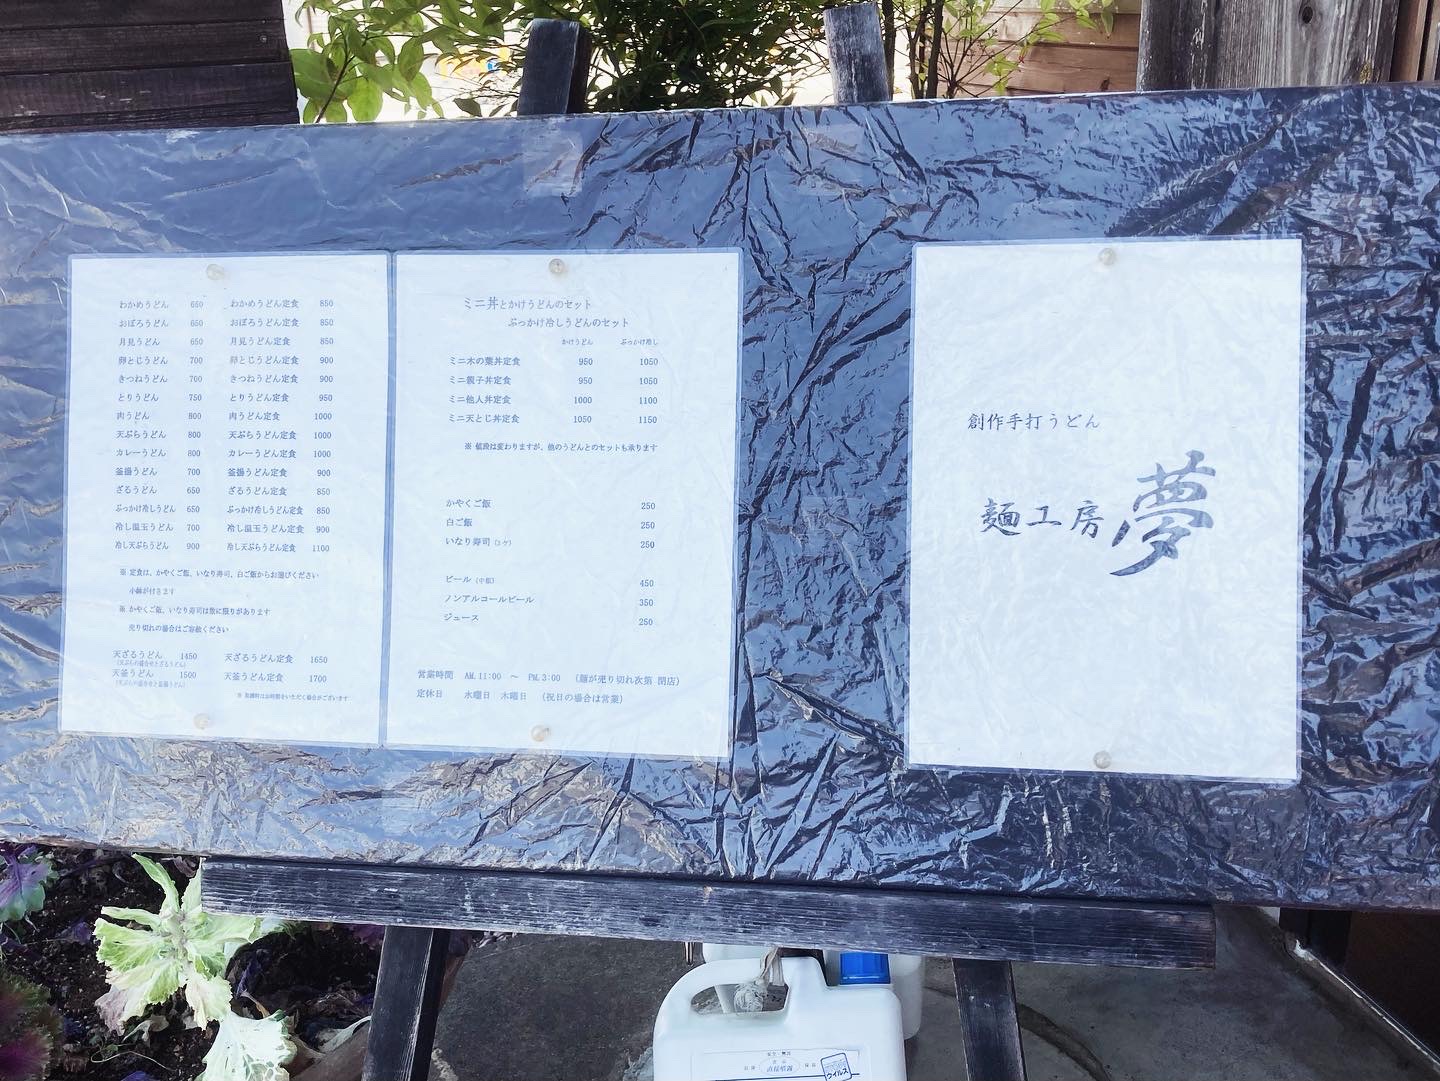 わかめうどん 650 わかめうどん定食 850
おぼろうどん 650 おぼろうどん定食 850
月見うどん 650 月見うどん定食 850
卵とじうどん 700 卵とじうどん定食 900
きつねうどん 700 きつねうどん定食 900
とりうどん 750 とりうどん定食 950
肉うどん 800 肉うどん定食 1000
天ぷらうどん 800 天ぷらうどん定食 1000
カレーうどん 800 カレーうどん定食 1000
釜揚うどん 700 釜揚うどん定食 900
ざるうどん 650 ざるうどん定食 850
ぶっかけ冷しうどん 650 ぶっかけ冷しうどん定食 850
冷し温玉うどん 700 冷し温玉うどん定食 900
冷し天ぷらうどん 900 冷し天ぷらうどん定食 1100
※ 定食は、かやくご飯、いなり寿司、白ご飯からお選びください
小鉢が付きます
※ かやくご飯、いなり寿司は数に限りがあります
売り切れの場合はご容赦ください
天ざるうどん 1450 天ざるうどん定食 1650
(天ぷらの盛合せとざるうどん)
天釜うどん 1500 天釜うどん定食 1700
(天ぷらの盛合せと釜揚うどん)
お時間をいただく場合がございます
ミニ丼とかけうどんのセット
ぶっかけ冷しうどんのセット
かけうどん ぶっかけ冷し
ミニ木の葉丼定食 950 1050
ミニ親子丼定食 950 1050
ミニ他人丼定食 1000 1100
ミニ天とじ丼定食 1050 1150
※ 値段は変わりますが、他のうどんとのセットも承ります
かやくご飯 250
白ご飯 250
いなり寿司 (2ケ) 250
ビール (中瓶) 450
ノンアルコールビール 350
ジュース 250
営業時間 AM.11:00 ～ PM.3:00 (麺が売り切れ次第 閉店)
定休日 水曜日 木曜日 (祝日の場合は営業)
創作手打うどん
麺工房 夢
直接噴霧
ウイルス